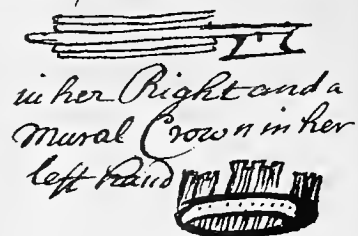 in her Right and a
Mural Crown in her
left hand